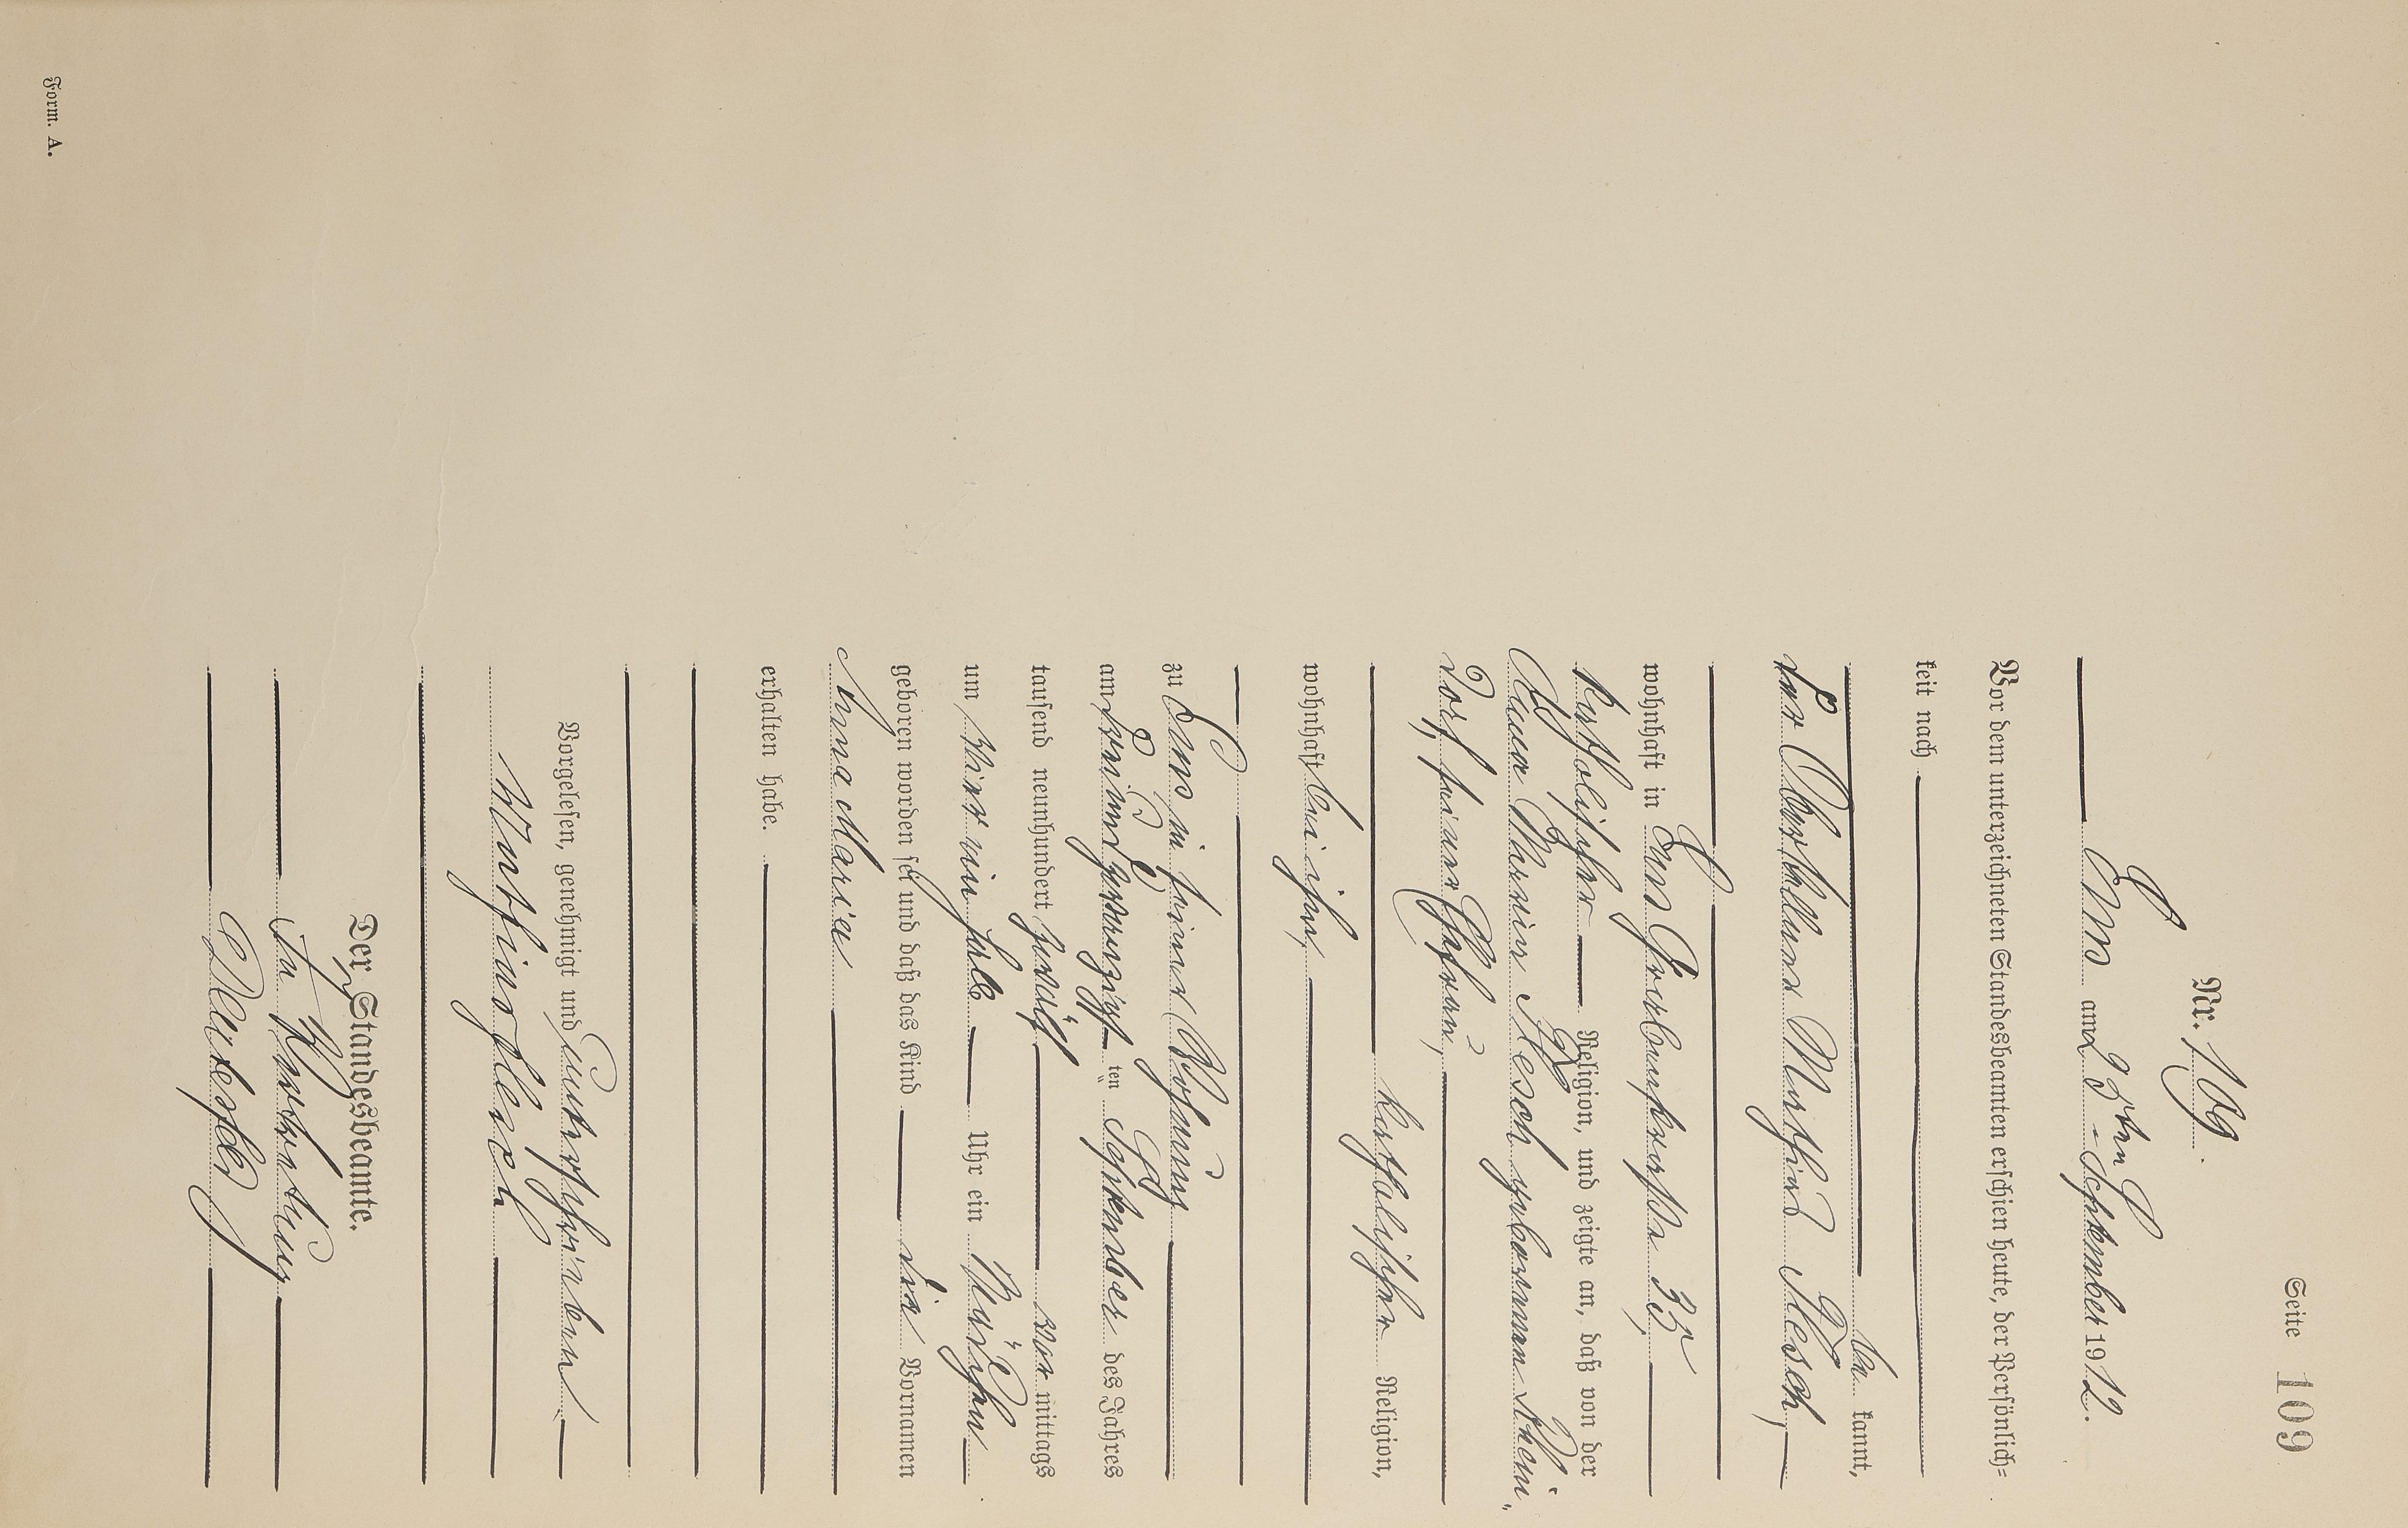 Seite 109
Nr. 109.
Ems am 23ten September 1912.
Vor dem unterzeichneten Standesbeamten erschien heute, der Persönlich=
keit nach
be kannt,
der Oberkellner Mathias Flesch,
wohnhaft in Ems, Grabenstraße 35,
katholischer Religion, und zeigte an, daß von der
Anna Maria Flesch geborenen Rhein„
dorf, seiner Ehefrau,
katholischer Religion,
wohnhaft bei ihm,
zu Ems in seiner Wohnung
am dreiundzwanzigsten September des Jahres
tausend neunhundert zwölf vor mittags
um vier ein halb Uhr ein Mädchen
geboren worden sei und daß das Kind die Vornamen
Anna Maria
erhalten habe.
Vorgelesen, genehmigt und unterschrieben
Mathias Flesch
Der Standesbeamte.
In Vertretung